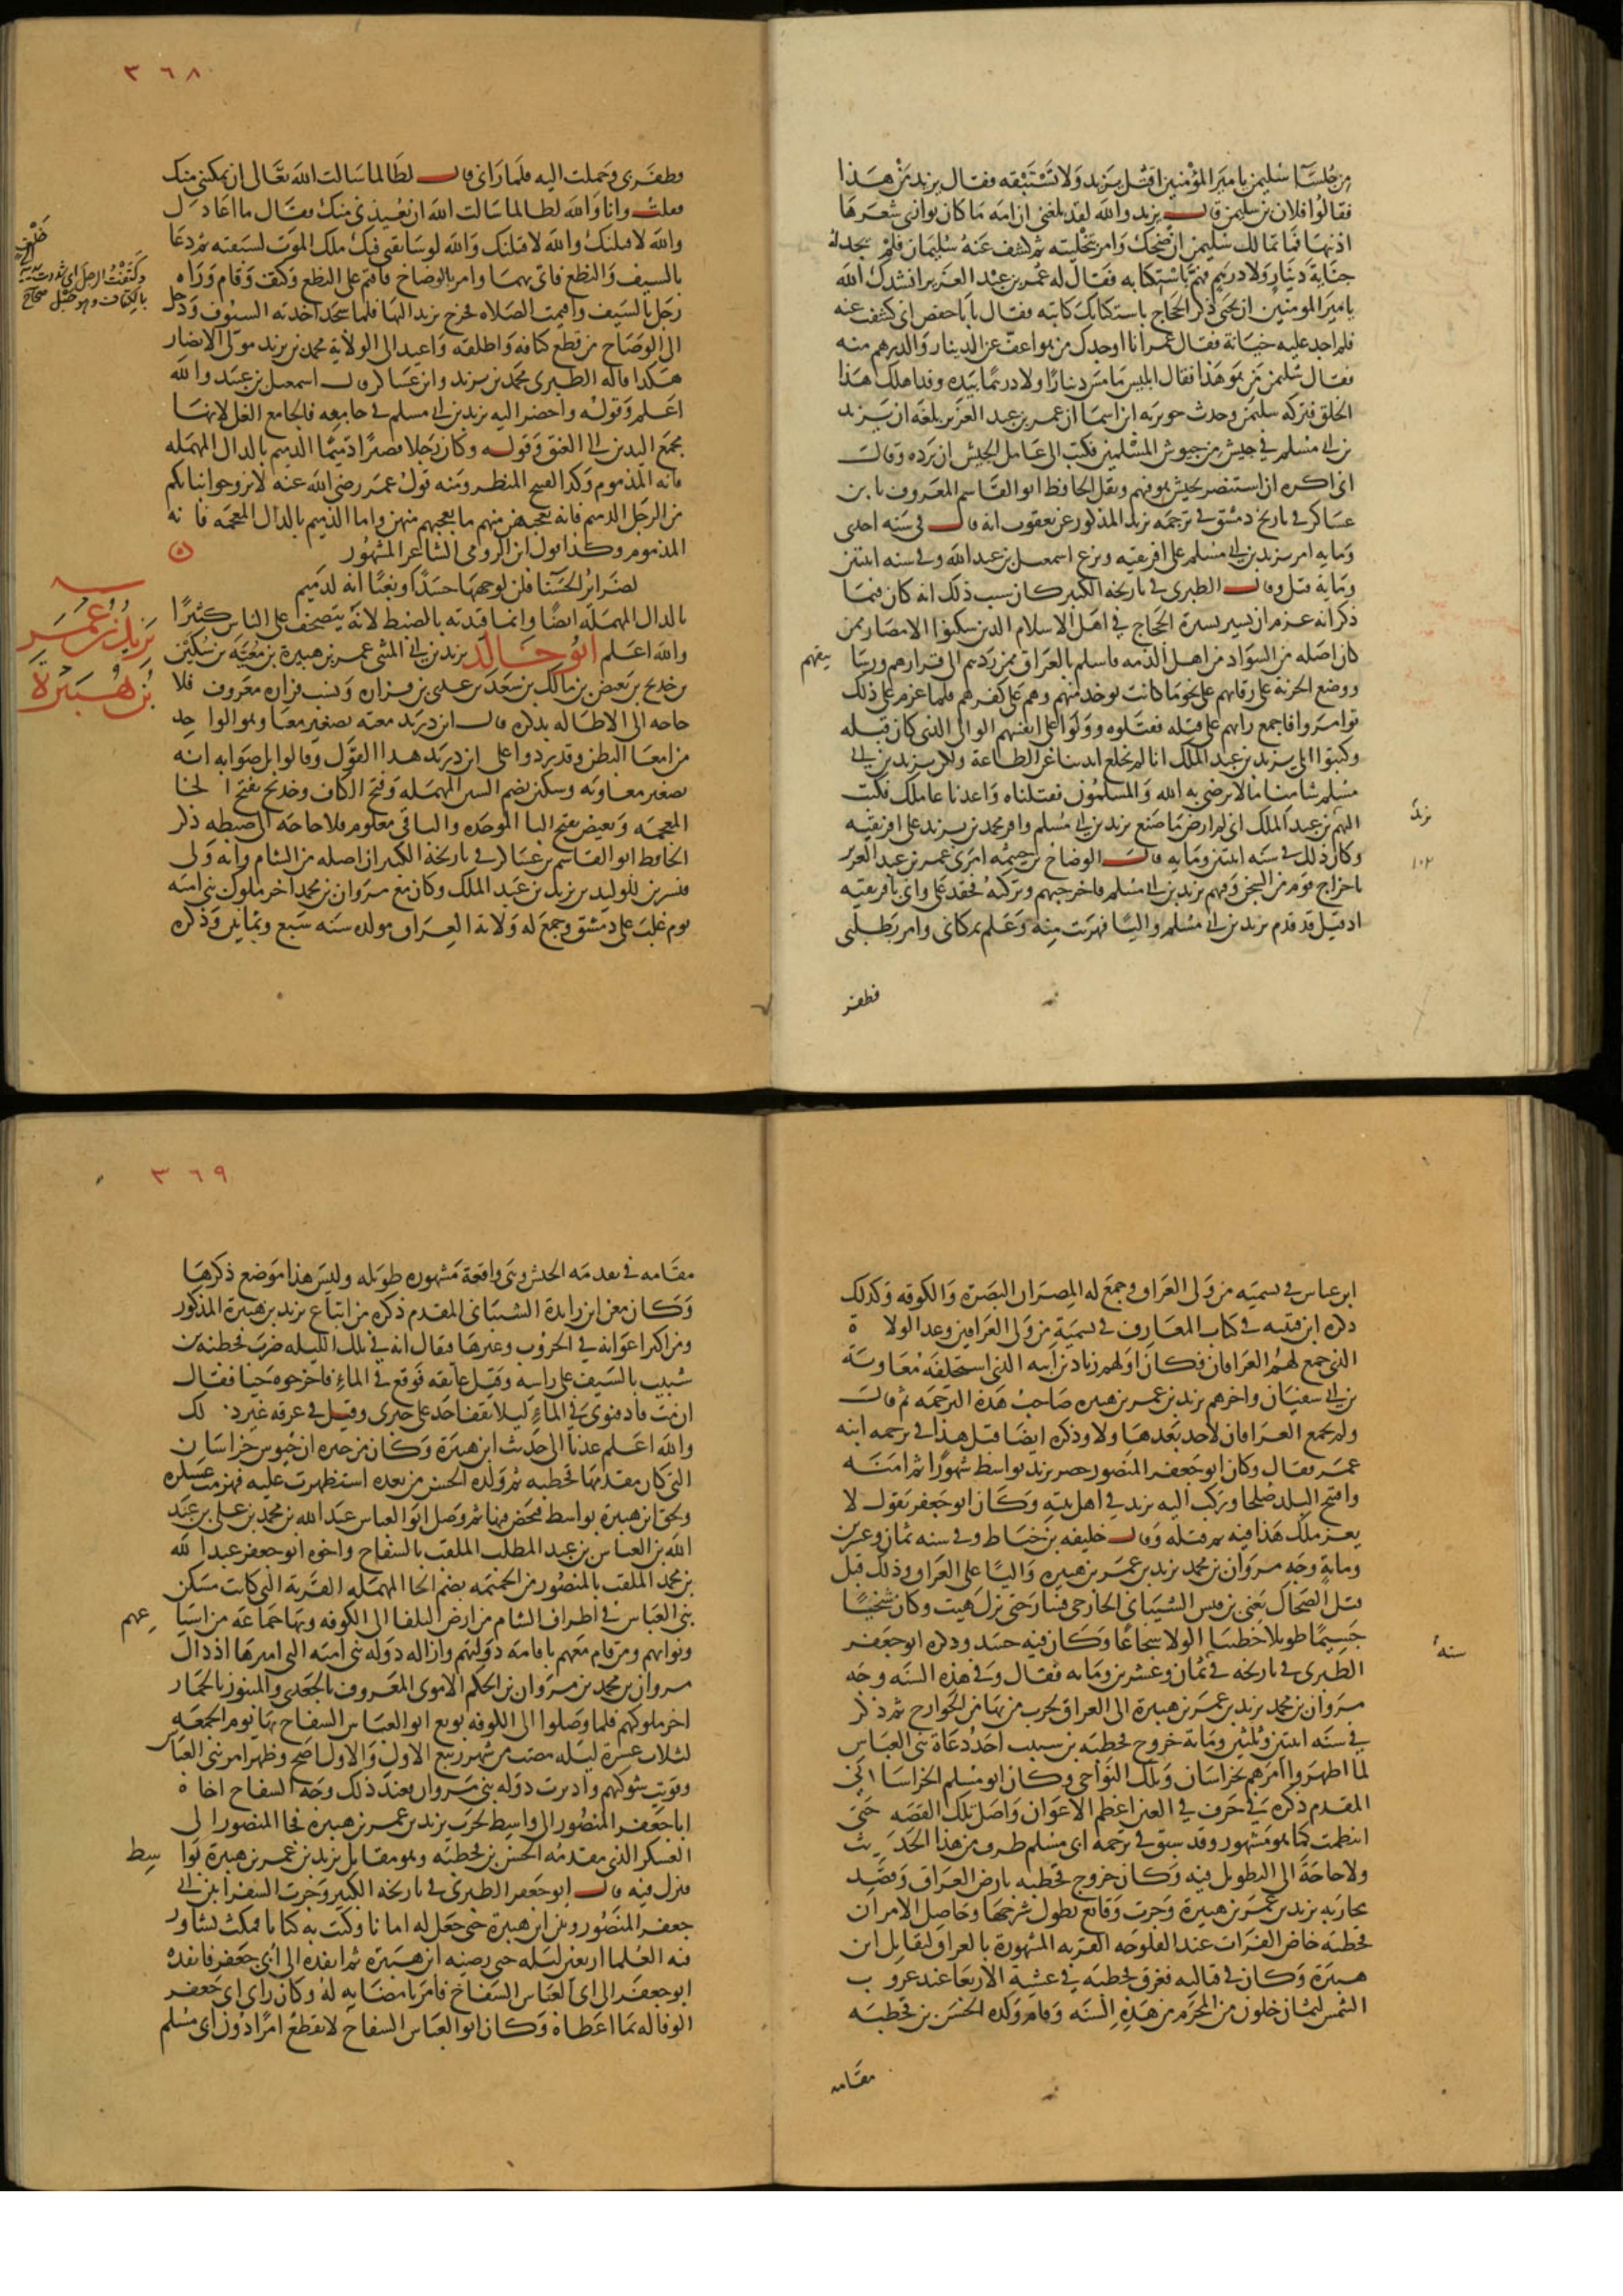 من جلسا سليمن يا مير المؤمنين اقتل يزيد ولا تستبقه فقال يزيد من هذا
فقالوا فلان بن سليمن قال يزيد والله لقد بلغني ان امه ما كان يواري شعرها
اذنيها فما تمالك سليمن ان ضحك وامر بتخليته ثم كشف عنه سليمان فلم يجد له
خيانة دينار ولا درهم فهم باستكتابه فقال له عمر بن عبد العزيز انشدك الله
يا مير المومنين ان تحيي ذكر الحجاج باستكتابك كاتبه فقال يا با حفص اني كشفت عنه
فلم اجد عليه خيانة فقال عمر انا اوجدك من هو اعف عن الدينار والدرهم منه
فقال سليمن من هو هذا فقال ابليس ما مس دينارا ولا درهما بيده وقد اهلك هذا
الخلق فتركه سليمن وحدث جويريه ابن اسما ان عمر بن عبد العزيز بلغه ان يزيد
بن ابي مسلم في جيش من جيوش المسلمين فكتب الى عامل الجيش ان يرده وقال
اني اكره ان استنصر بجيش هو فيهم ونقل الحافظ ابو القاسم المعروف بابن
عساكر في تاريخ دمشق في ترجمه يزيد المذكور عن يعقوب انه قال في سنه احدى
ومايه امر يزيد بن ابي مسلم على افريقيه ونزع اسمعيل بن عبد الله وفي سنه اثنتين
ومايه قتل وقال الطبري في تاريخه الكبير كان سبب ذلك انه كان فيما
ذكر انه عزم ان يسير بسيرة الحجاج في اهل الاسلام الذين سكنوا الامصار ممن
كان اصله من السواد من اهل الذمه فاسلم بالعراق ممن ردهم الى قراهم ورساتيقهم
ووضع الجزية على رقابهم على نحو ما كانت توخد منهم وهم على كفرهم فلما عزم على ذلك
توامروا فاجمع رايهم على قتله فقتلوه وولوا على انفسهم الوالي الذي كان قبله
وكتبوا الى يزيد بن عبد الملك انا لم نخلع ايدينا عن الطاعة ولكن يزيد بن ابي
مسلم شامنا ما لا يرضى به الله والمسلمون فقتلناه واعدنا عاملك فكتب
اليهم بن عبد الملك اني لم ارض ما صنع يزيد بن ابي مسلم واقر محمد بن يزيد على افريقيه
يزيد
وكان ذلك في سنه اثنتين ومايه قال الوضاح بن خيثمه امرني عمر بن عبد العزيز
١٠٢
باخراج قوم من السجن وفيهم يزيد بن ابي مسلم فاخرجتهم وتركته فحقد علي واني بافريقيه
اذ قيل قد قدم يزيد بن ابي مسلم واليا فهربت منه وعلم بمكاني وامر بطلبي
فظفر
٣٦٨
فظفر بي وحملت اليه فلما راني قال لطالما سالت الله تعالى ان يمكنني منك
فقلت وانا والله لطالما سالت الله ان يعيذني منك فقال ما اعاذك
والله لاقتلنك والله لاقتلنك والله لو سابقني فيك ملك الموت لسبقته ثم دعا
بالسيف والنطع فاتي بهما وامر بالوضاح فاقيم على النطع وكتف وقام وراه
رجل بالسيف واقيمت الصلاه فخرج يزيد اليها فلما سجد اخذته السيوف ودخل
الى الوضاح من قطع كتافه واطلقه واعيد الى الولاية محمد بن يزيد مولى الانصار
هكذا قاله الطبري محمد بن يزيد وابن عساكر قال اسمعيل بن عبيد والله
اعلم وقوله واحضر اليه يزيد بن ابي مسلم في جامعه فالجامع الغل لانها
تجمع اليدين الى العنق وقوله وكان رجلا قصيرا دميما الدميم بالدال المهمله
وكتفت الرجل اي شددت يديه
بالكتاف وهو حبل صحاح
فانه المذموم وكذا القبيح المنظر ومنه قول عمر رضي الله عنه لا تزوجوا بناتكم
من الرجل الدميم فانه يعجبهن منهم ما يعجبهم منهن واما الذميم بالذال المعجمه فانه
المذموم وكذا يقول ابن الرومي الشاعر المشهور
لضراير الحسنا قلن لوجهها حسدا وبغيا انه لدميم
بالدال المهملة ايضا وانما قيدته بالضبط لانه يتصحف على الناس كثيرا
يزيد بن عمر
بن هبيرة
والله اعلم ابو خالد يزيد بن ابي المثنى عمر بن هبيرة بن معيه بن سكين
بن خديج بن بغيض بن مالك بن سعد بن عدي بن فزاره ونسب فزاره معروف فلا
حاجه الى الاطاله بذكره قال ابن دريد معيه تصغير معا وهو الواحد
من امعا البطن وقد ردوا على ابن دريد هذا القول وقالوا بل صوابه انه
تصغير معاويه وسكين بضم السين المهمله وفتح الكاف وخديج بفتح الخا
المعجمه وبغيض بفتح البا الموحده والباقي معلوم فلا حاجه الى ضبطه ذكر
الحافظ ابو القاسم بن عساكر في تاريخه الكبير ان اصله من الشام وانه ولي
قنسرين للوليد بن يزيد بن عبد الملك وكان مع مروان بن محمد اخر ملوك بني اميه
يوم غلب على دمشق وجمع له ولاية العراق مولده سنه سبع وثمانين وذكره
ابن عياش في تسميه من ولي العراق وجمع له المصران البصرة والكوفه وكذلك
ذكره ابن قتيبه في كتاب المعارف في تسمية من ولي العراقين وعد الولاة
الذي جمع لهم العراقان فكان اولهم زياد بن ابيه الذي استخلفه معاويه
بن ابي سفيان واخرهم يزيد بن عمر بن هبيره صاحب هذه الترجمه ثم قال
ولم يجمع العراقان لاحد بعدها ولا وذكره ايضا قبل هذا في ترجمه ابنه
عمر فقال وكان ابو جعفر المنصور حصر يزيد بواسط شهورا ثم امنه
وافتتح البلد صلحا وركب اليه يزيد في اهل بيته وكان ابو جعفر يقول لا
يعز ملك هذا فيه ثم قتله وقال خليفه بن خياط وفي سنه ثمان وعشرين
وماية وجه مروان بن محمد يزيد بن عمر بن هبيره واليا على العراق وذلك قبل
قتل الضحاك يعني بن قيس الشيباني الخارجي فسار حتى نزل هيت وكان سخيا
جسيما طويلا خطيبا اكولا شجاعا وكان فيه حسد وذكره ابو جعفر
الطبري في تاريخه في ثمان وعشرين ومايه فقال وفي هذه السنه وجه
سنة
مروان بن محمد يزيد بن عمر بن هبيرة الى العراق لحرب من بها من الخوارج ثم ذكر
في سنه اثنتين وثلثين وماية خروج قحطبه بن شبيب احد دعاة بني العباس
لما اظهروا امرهم بخراسان وتلك النواحي وكان ابو مسلم الخراساني
المقدم ذكره في حرف في العين اعظم الاعوان واصل تلك القصه حتى
انتظمت كما هو مشهور وقد سبق في ترجمه ابي مسلم طرف من هذا الحديث
ولا حاجة الى التطويل فيه وكان خروج قحطبه بارض العراق وقصد
محاربه يزيد بن عمر بن هبيرة وجرت وقايع يطول شرحها وحاصل الامر ان
قحطبه خاض الفرات عند الفلوجه القريه المشهورة بالعراق ليقاتل ابن
هبيرة وكان في قبالته فغرق قحطبه في عشية الاربعا عند غروب
الشمس لثمان خلون من المحرم من هذه السنه وقام ولده الحسن بن قحطبه
مقامه
٣٦٩
مقامه في تقدمه الجيش وهي واقعة مشهوره طويله وليس هذا موضع ذكرها
وكان معن ابن زايدة الشيباني المقدم ذكره من اتباع يزيد بن هبيرة المذكور
ومن اكبر اعوانه في الحروب وغيرها فيقال انه في تلك الليله ضرب قحطبه بن
شبيب بالسيف على راسه وقيل عاتقه فوقع في الماء فاخرجوه حيا فقال
ان مت فادفنوني في الماء ليلا يقف احد على خبري وقيل في غرقه غير ذلك
والله اعلم عدنا الى حديث ابن هبيرة وكان من خبره ان جيوش خراسان
التي كان مقدمها قحطبه ثم ولده الحسن من بعده استظهرت عليه فهزمت عسكره
ولحق ابن هبيرة بواسط فتحصن فيها ثم وصل ابو العباس عبد الله بن محمد بن علي بن عبد
الله بن العباس بن عبد المطلب الملقب بالسفاح واخوه ابو جعفر عبد الله
بن محمد الملقب بالمنصور من الحميمه بضم الحا المهمله القرية التي كانت مسكن
بني العباس في اطراف الشام من ارض البلقا الى الكوفه وبها جماعه من اشياعهم
ونوابهم ومن قام معهم باقامه دولتهم وازاله دوله بني اميه التي اميرها اذ ذاك
مروان بن محمد بن مروان بن الحكم الاموي المعروف بالجعدي والمنبوز بالحمار
اخر ملوكهم فلما وصلوا الى الكوفه بويع ابو العباس السفاح بها يوم الجمعه
لثلاث عشرة ليله مضت من شهر ربيع الاول والاول اصح وظهر امر بني العباس
وقويت شوكتهم وادبرت دوله بني مروان بعند ذلك وجه السفاح اخاه
ابا جعفر المنصور الى واسط لحرب يزيد بن عمر بن هبيرة فجا المنصور الى
العسكر الذي مقدمه الحسن بن قحطبه وهو مقابل يزيد بن عمر بن هبيرة بواسط
فنزل فيه قال ابو جعفر الطبري في تاريخه الكبير وجرت السفرا بين ابي
جعفر المنصور وبين ابن هبيرة حتى جعل له امانا وكتب به كتابا فمكث يشاور
فيه العلما اربعين ليله حتى رضيه ابن هبيرة ثم انفذه الى ابي جعفر فانفذه
ابو جعفر الى ابي العباس السفاح فامر بامضايه له وكان راي ابي جعفر
الوفا له بما اعطاه وكان ابو العباس السفاح لا يقطع امرا دون ابي مسلم